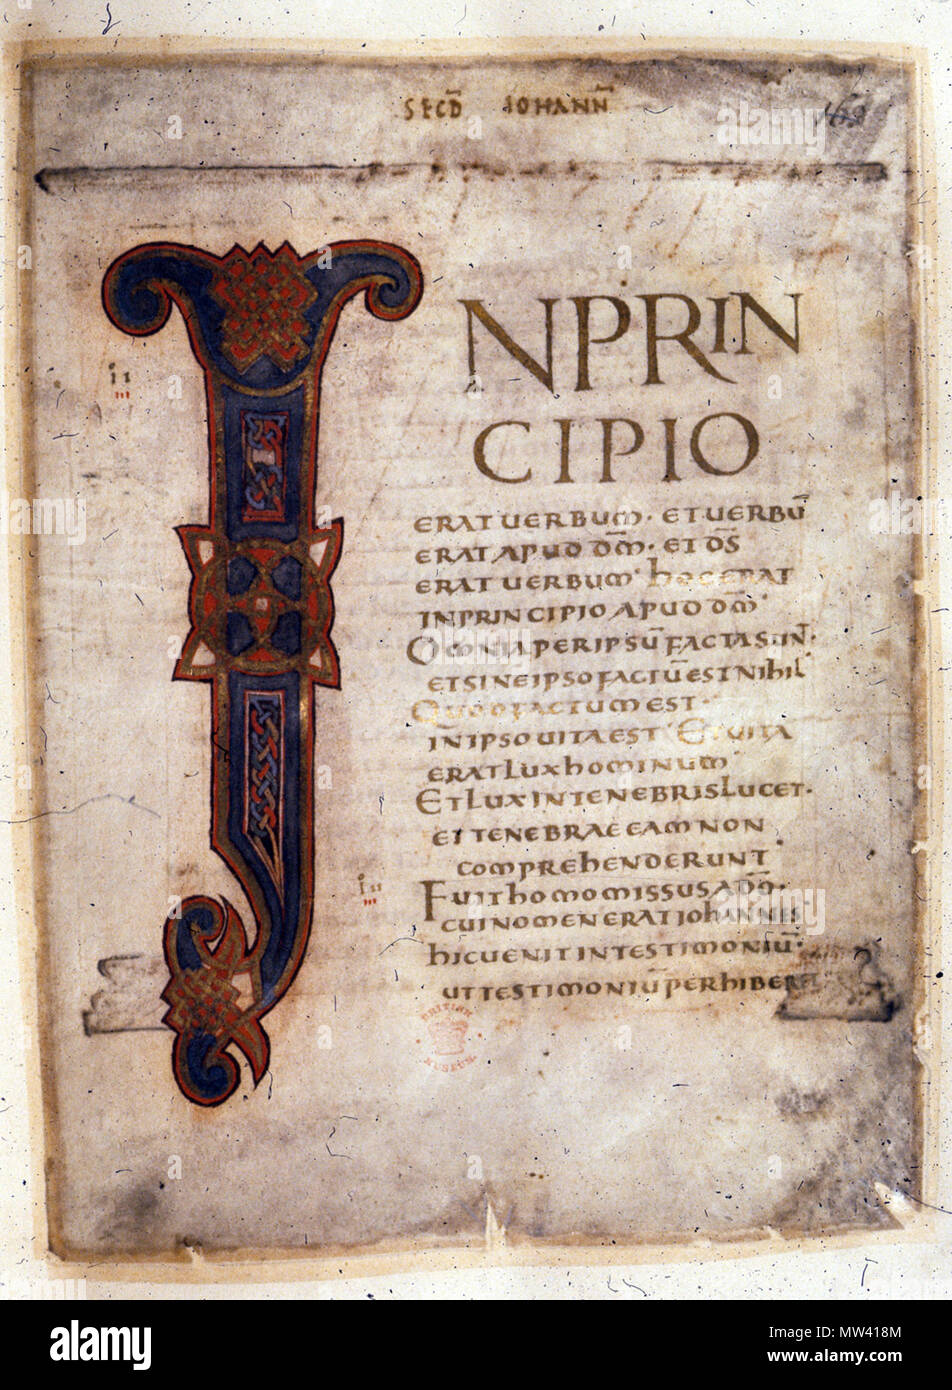 SECD̄ IOHANN̄
163
INPRIN
CIPIO
ERAT UERBUM · ET UERBŪ
ERAT APUD DM̄ · ET DS̄
ERAT UERBUM · hOC ERAT
IN PRINCIPIO APUD DM̄ ·
OMNIA PER IPSŪ FACTA S̄UN̄T ·
ET SINE IPSO FACTŪ EST NIhIL
QUOD FACTUM EST ·
IN IPSO UITA EST · ET UITA
ERAT LUX hOMINUM
ET LUX IN TENEBRIS LUCET ·
ET TENEBRAE EAM NON
COMPREhENDERUNT ·
FUIT hOMO MISSUS A DŌ ·
CUI NOMEN ERAT IOhANNES
hIC UENIT IN TESTIMONIŪ ·
UT TESTIMONIŪ PERHIBERET
BRITISH
MUSEUM
alamy
Image ID: MW418M
www.alamy.com